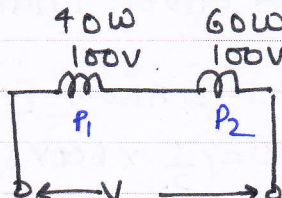 40W 60W
100V 100V
P1 P2
V